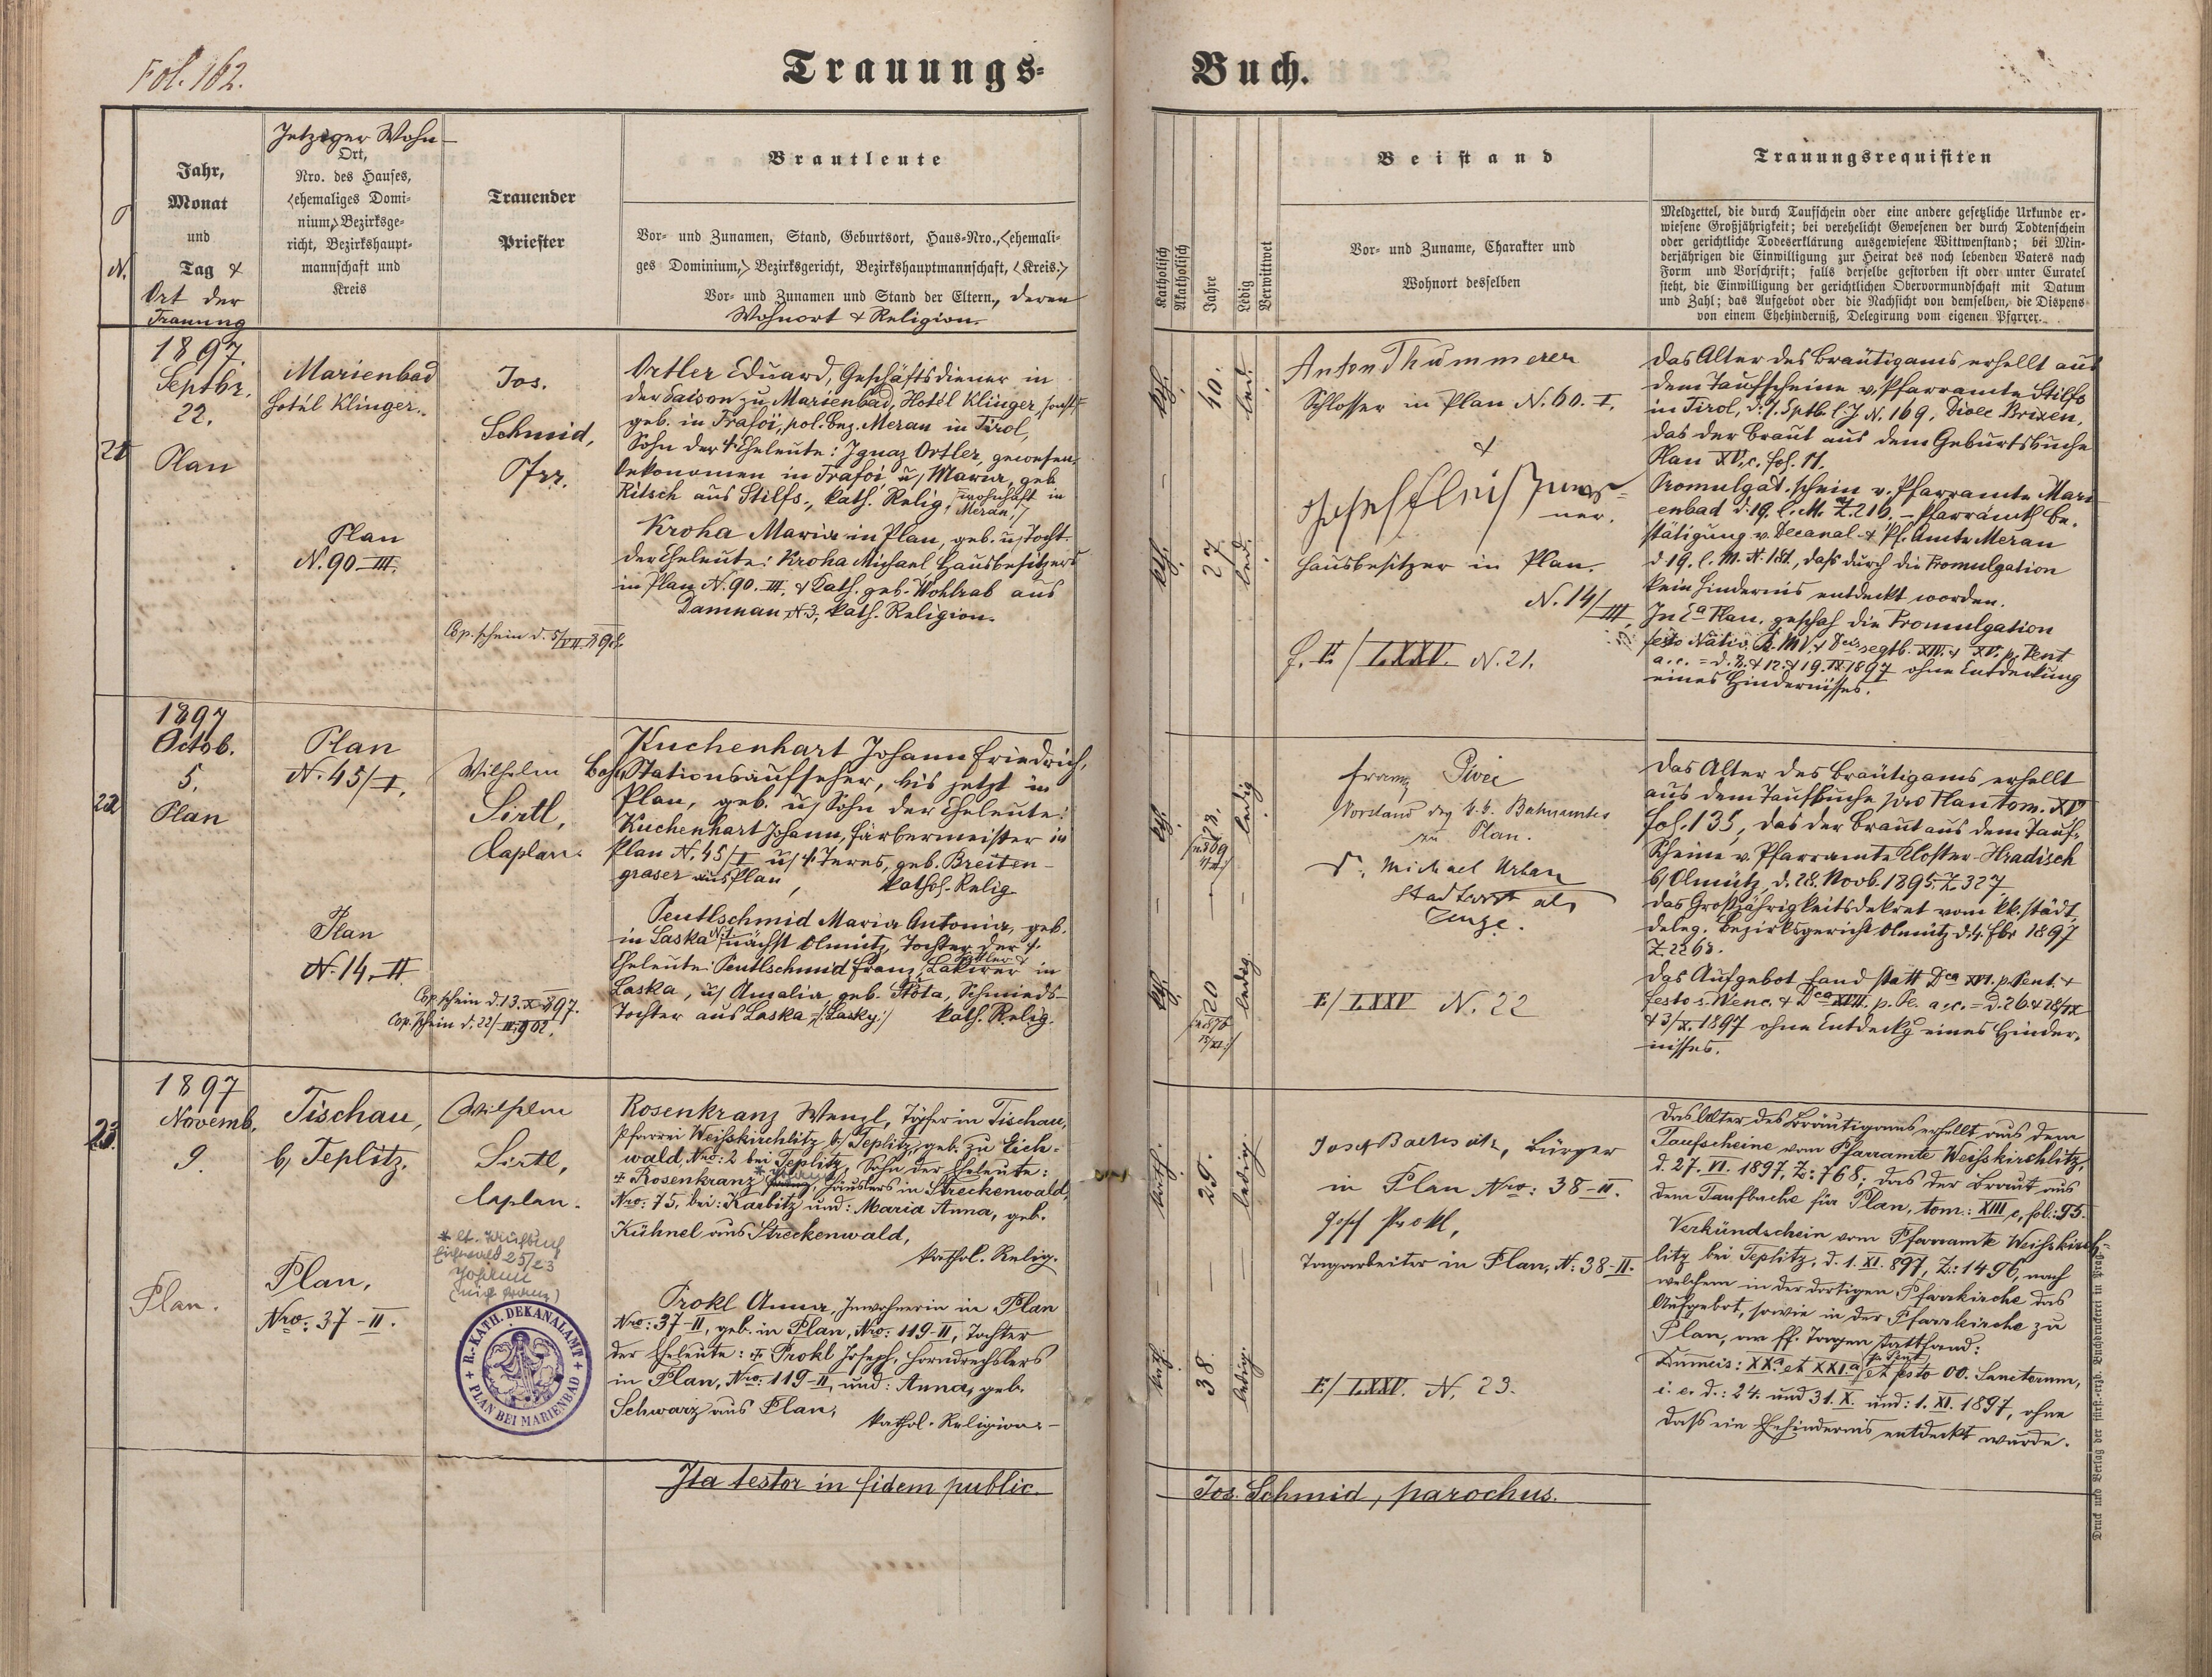 Fol. 162.
Trauungs-
Buch.
N.
Jahr,
Monat
und
Tag &
Ort der
Trauung
Jetziger Wohn-
Ort,
Nro. des Hauses,
(ehemaliges Domi-
nium,) Bezirksge-
richt, Bezirkshaupt-
mannschaft und
Kreis
Trauender
Priester
Brautleute
Vor- und Zunamen, Stand, Geburtsort, Haus-Nro., (ehemali-
ges Dominium,) Bezirksgericht, Bezirkshauptmannschaft, (Kreis.)
Vor- und Zunamen und Stand der Eltern, deren
Wohnort & Religion.
Katholisch
Akatholisch
Jahre
Ledig
Verwittwet
Beistand
Vor- und Zuname, Charakter und
Wohnort desselben
Trauungsrequisiten
Meldzettel, die durch Taufschein oder eine andere gesetzliche Urkunde er-
wiesene Großjährigkeit; bei verehelicht Gewesenen der durch Todtenschein
oder gerichtliche Todeserklärung ausgewiesene Wittwenstand; bei Min-
derjährigen die Einwilligung zur Heirat des noch lebenden Vaters nach
Form und Vorschrift; falls derselbe gestorben ist oder unter Curatel
steht, die Einwilligung der gerichtlichen Obervormundschaft mit Datum
und Zahl; das Aufgebot oder die Nachsicht von demselben, die Dispens
von einem Ehehinderniß, Delegirung vom eigenen Pfarrer.
21
1897.
Septbr.
22.
Plan
Marienbad
Hotél Klinger.
Plan
N. 90-III.
Jos.
Schmid,
Pfrr.
Cop. schein d.
Ortler Eduard, Geschäftsdiener in
der Saison zu Marienbad, Hotél Klinger,
geb. in Trafoi, pol. Bez. Meran in Tirol,
Sohn der † Eheleute: Ignaz Ortler, gewesen.
Oekonomen in Trafoi u/ Maria, geb.
Ritsch aus Stilfs, kath. Relig. wohnhaft in
Meran.
Kroha Maria in Plan, geb. u/ Tocht.
der Eheleute: Kroha Michael Hausbesitzers
in Plan N. 90.-III. & Kath. geb. Wohlrab aus
Damnau N. 3, kath. Religion.
kth.
40.
led.
kth.
27
led.
Anton Thummerer
Schlosser in Plan N. 60. I.
&
ner.
Hausbesitzer in Plan.
N. 14/III.
LXXV. N. 21.
Das Alter des Bräutigams erhellt aus
dem Taufscheine v. Pfarramte Stilfs
in Tirol, d. 7. Sptb. l. J. N. 169, Dioec Brixen,
das der Braut aus dem Geburtsbuche
Plan XV, c. fol. 11.
Promulgat. schein v. Pfarramte Mari-
enbad d. 19. l. M. Z. 216. - Pfarramtl. Be-
stätigung v. Decanal- & Pf. Amte Meran
d 19. l. M. N. 181, daß durch die Promulgation
kein Hindernis entdeckt worden.
In Plan geschah die Promulgation
festo Nativ. B. M. V. & XIV. & XV. p. Pent
a. c. = d. 8. & 12. & 19. IX. 1897 ohne Entdeckung
eines Hindernisses.
22
1897
Octob.
5.
Plan
Plan
N. 45/I.
Plan
N. 14. II
Cop. schein d. 13. X. 897.
Cop. schein d. 22/ 902.
Wilhelm
Sirtl,
Caplan.
Kuchenhart Johann Friedrich,
Bahn Stationsaufseher, bis jetzt in
Plan, geb. u/ Sohn der Eheleute:
Kuchenhart Johann, Färbermeister in
Plan N. 45/I u/ † Teres, geb. Breiten-
graser aus Plan, kathol. Relig.
Peutlschmid Maria Antonia, geb.
in Laska N. 1 nächst Olmütz, Tochter der †
Eheleute: Peutlschmid Franz, Sattler & Lakirer in
Laska, u/ Amalia, geb. Stota, Schmieds-
Tochter aus Laska /:Lasky:/ kath. Relig.
kth.
28.
ledig
kth.
20
ledig
Franz
Vorstand des k. k. Bahnamtes
in Plan.
Dr. Michael Urban
Stadtarzt als
Zeuge.
F/ LXXV N. 22
Das Alter des Bräutigams erhellt
aus dem Taufbuche pro Plan tom. XV
fol. 135, das der Braut aus dem Tauf-
scheine v. Pfarramte Kloster-Hradisch
b/ Olmütz, d. 28. Novb. 1895. Z. 327
Das Großjährigkeitsdekret vom kk. städt.
deleg. Bezirksgericht Olmütz d. 4. Fbr 1897
Z. 2268.
Das Aufgebot fand statt Dca XVI. p. Pent. &
festo s. Wenc. & Dca XVII. p. Pe. a. c. = d. 26 & 28/IX
& 3/X. 1897 ohne Entdeckg eines Hinder-
nisses.
23.
1897
Novemb.
9.
Plan.
Tischau,
b/ Teplitz.
Plan,
Nro: 37-II.
Wilhelm
Sirtl,
Caplan.
Eichwald 25/23
Johann
R.-KATH. DEKANALAMT + PLAN BEI MARIENBAD +
Rosenkranz Wenzl, in Tischau,
Pfarrei Weißkirchlitz b/ Teplitz, geb. zu Eich-
wald, Nro: 2 bei Teplitz, Sohn der Eheleute:
† Rosenkranz, Häuslers in Streckenwald,
Nro: 75, bei: Karbitz und: Maria Anna, geb.
Kühnel aus Streckenwald,
kathol. Relig.
Prokl Anna, Inwohnerin in Plan
Nro: 37-II, geb. in Plan, Nro: 119-II, Tochter
der Eheleute: † Prokl Joseph, Horndrechslers
in Plan, Nro: 119-II, und: Anna, geb.
Schwarz aus Plan,
kathol. Religion.-
kath.
29.
ledig.
kath.
38.
ledig.
Josef, Bürger
in Plan Nro: 38-II.
Josef Prokl,
Tagarbeiter in Plan, N: 38-II.
F/ LXXV. N. 23.
Das Alter des Bräutigams erhellt aus dem
Taufscheine vom Pfarramte Weißkirchlitz,
d. 27. VI. 1897, Z: 768; das der Braut aus
dem Taufbuche für Plan, tom: XIII c, fol: 95.
Verkündschein vom Pfarramte Weißkirch-
litz bei Teplitz, d. 1. XI. 897, Z: 1496, nach
welchem in der dortigen Pfarrkirche das
Aufgebot, sowie in der Pfarrkirche zu
Plan, an ff. Tagen stattfand:
XX.a et XXI.a p. Pent. et festo OO. Sanctorum,
i. e. d.: 24. und 31. X. und: 1. XI. 1897, ohne
daß ein Ehehindernis entdeckt wurde.
Ita testor in fidem public.
Jos. Schmid, parochus.
Druck und Verlag der fürst.-erzb. Buchdruckerei in Prag.